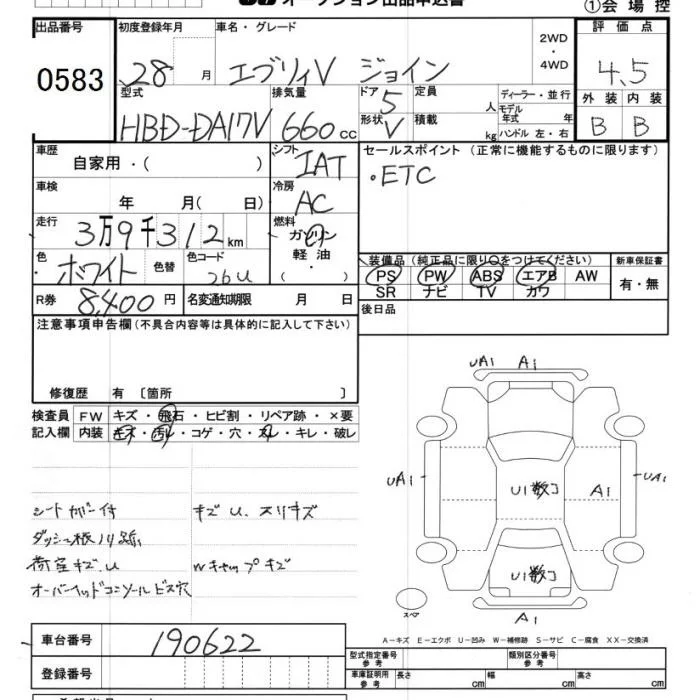 オークション出品申込書
①会場控
出品番号 初度登録年月 車名・グレード 2WD・4WD 評価点
0583 28 月 エブリィV ジョイン 4.5
型式 排気量 ドア 定員 ディーラー・並行 外装 内装
HBD-DA17V 660cc 5 人 モデル年式 年 B B
形状 V 積載 kg ハンドル 左・右
車歴 自家用・( ) シフト IAT セールスポイント (正常に機能するものに限ります)
・ETC
車検 年 月( 日) 冷房 AC
走行 3万9千312km 燃料 ガソリン・軽油・( )
色 ホワイト 色替 色コード 26U
装備品 (純正品に限り○をつけてください) 新車保証書
PS PW ABS エアB AW 有・無
SR ナビ TV カワ
R券 8,400円 名変通知期限 月 日 後日品
注意事項申告欄(不具合内容等は具体的に記入して下さい)
修復歴 有 〔箇所 〕
検査員 FW キズ・飛石・ヒビ割・リペア跡・×要
記入欄 内装 キズ・汚レ・コゲ・穴・スレ・キレ・破レ
シートカバー付 キズ U.スリキズ
ダッシュ板ノリ跡
荷室キズ.U Wキャップキズ
オーバーヘッドコンソールビス穴
UA1 A1
UA1 U1数コ A1 UA1
U1数コ
スペア A1
A-キズ E-エクボ U-凹み W-補修跡 S-サビ C-腐食 XX-交換済
車台番号 190622
型式指定番号 参考 類別区分番号 参考
登録番号 車庫証明用 参考 長さ cm 幅 cm 高さ cm